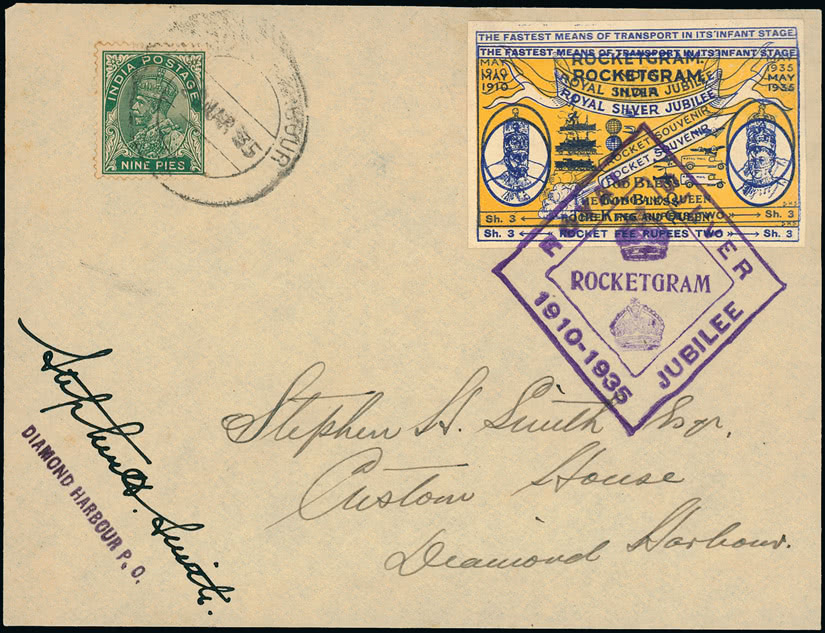 INDIA POSTAGE
NINE PIES
HARBOUR
MAR 35
THE FASTEST MEANS OF TRANSPORT IN ITS INFANT STAGE
THE FASTEST MEANS OF TRANSPORT IN ITS INFANT STAGE
ROCKETGRAM.
ROCKETGRAM.
INDIA
MAY
1910
1910
1935
MAY
1935
ROYAL SILVER JUBILEE
ROYAL SILVER JUBILEE
ROCKET SOUVENIR
ROCKET SOUVENIR
GOD BLESS
GOD BLESS
THE KING AND QUEEN
Sh. 3
Sh. 3
Sh. 3
ROCKET FEE RUPEES TWO
Sh. 3
ROYAL SILVER
JUBILEE
1910-1935
ROCKETGRAM
Stephen H. Smith Esqr.
Custom House
Diamond Harbour.
Stephen H. Smith.
DIAMOND HARBOUR P.O.